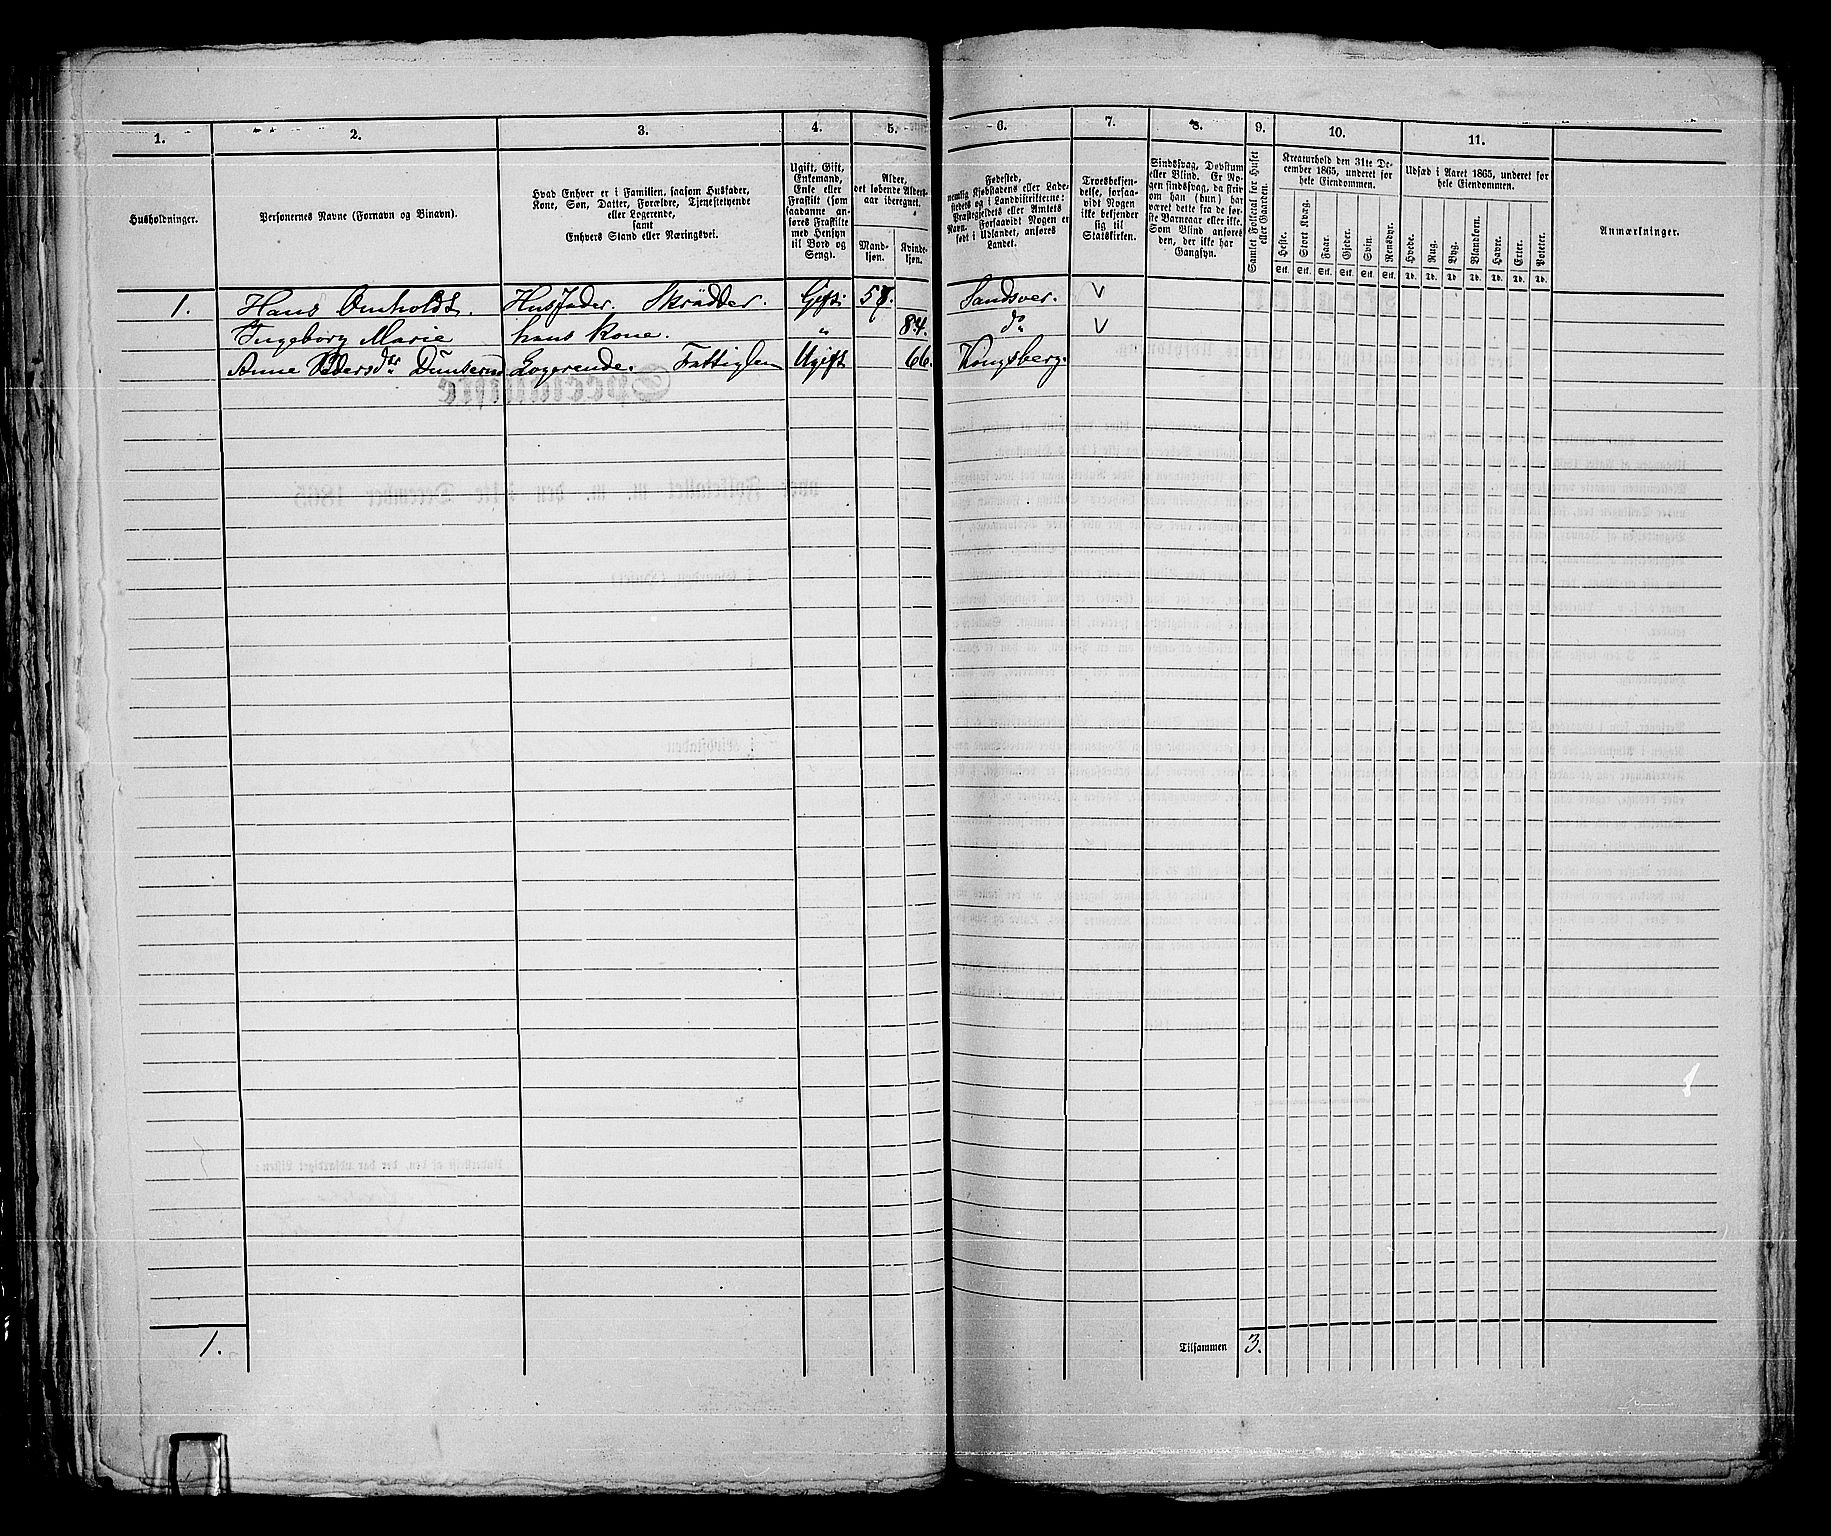 1. 2. 3. 4. 5. 6. 7. 8. 9. 10. 11.
Husholdninger.
Personernes Navne (Fornavn og Binavn).
Hvad Enhver er i Familien, saasom Husfader,
Kone, Søn, Datter, Forældre, Tjenestetyende
eller Logerende,
samt
Enhvers Stand eller Næringsvei.
Ugift, Gift,
Enkemand,
Enke eller
Fraskilt (som
saadanne an-
føres Fraskilte
med Hensyn
til Bord og
Seng).
Alder,
det løbende Alders-
aar iberegnet.
Mand-
kjøn.
Kvinde-
kjøn.
Fødested,
nemlig Kjøbstadens eller Lade-
stedets og i Landdistrikterne:
Præstegjeldets eller Amtets
Navn. Forsaavidt Nogen er
født i Udlandet, anføres
Landet.
Troesbekjen-
delse, forsaa-
vidt Nogen
ikke bekjender
sig til
Statskirken.
Sindssvag, Døvstum
eller Blind. Er No-
gen sindssvag, da skri-
ves om han (hun) har
været dette fra de før-
ste Barneaar eller ikke.
Som Blind anføres
den, der ikke har
Gangsyn.
Samlet Folketal for Huset
eller Gaarden.
Kreaturhold den 31te De-
cember 1865, underet for
hele Eiendommen.
Heste. Stort Kvæg. Faar. Gjeder. Svin. Rensdyr.
Stk. Stk. Stk. Stk. Stk. Stk.
Udsæd i Aaret 1865, underet for
hele Eiendommen.
Hvede. Rug. Byg. Blandkorn. Havre. Erter. Poteter.
Td. Td. Td. Td. Td. Td. Td.
Anmærkninger.
1. Hans Omholdt. Husfader. Skrædder. Gift. 57. Sandsver. V
Ingeborg Marie hans Kone. „ 84. do V
Anne Pedersdr Logerende. Fattiglem Ugift 66. Kongsberg.
1. Tilsammen 3.